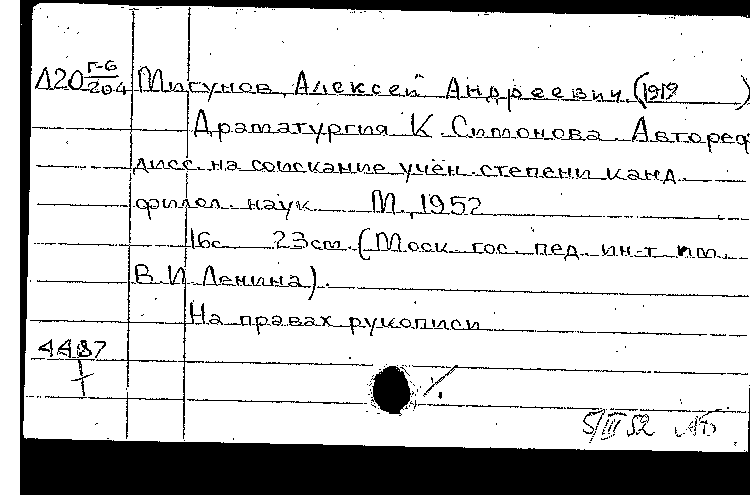 Л20 Г-6/204 Мигунов, Алексей Андреевич (1919 )
Драматургия К. Симонова. Автореф.
дисс. на соискание учён. степени канд.
филол. наук М., 1952
16с 23см. (Моск. гос. пед. ин-т им.
В.И. Ленина).
На правах рукописи
4487
5/III 52